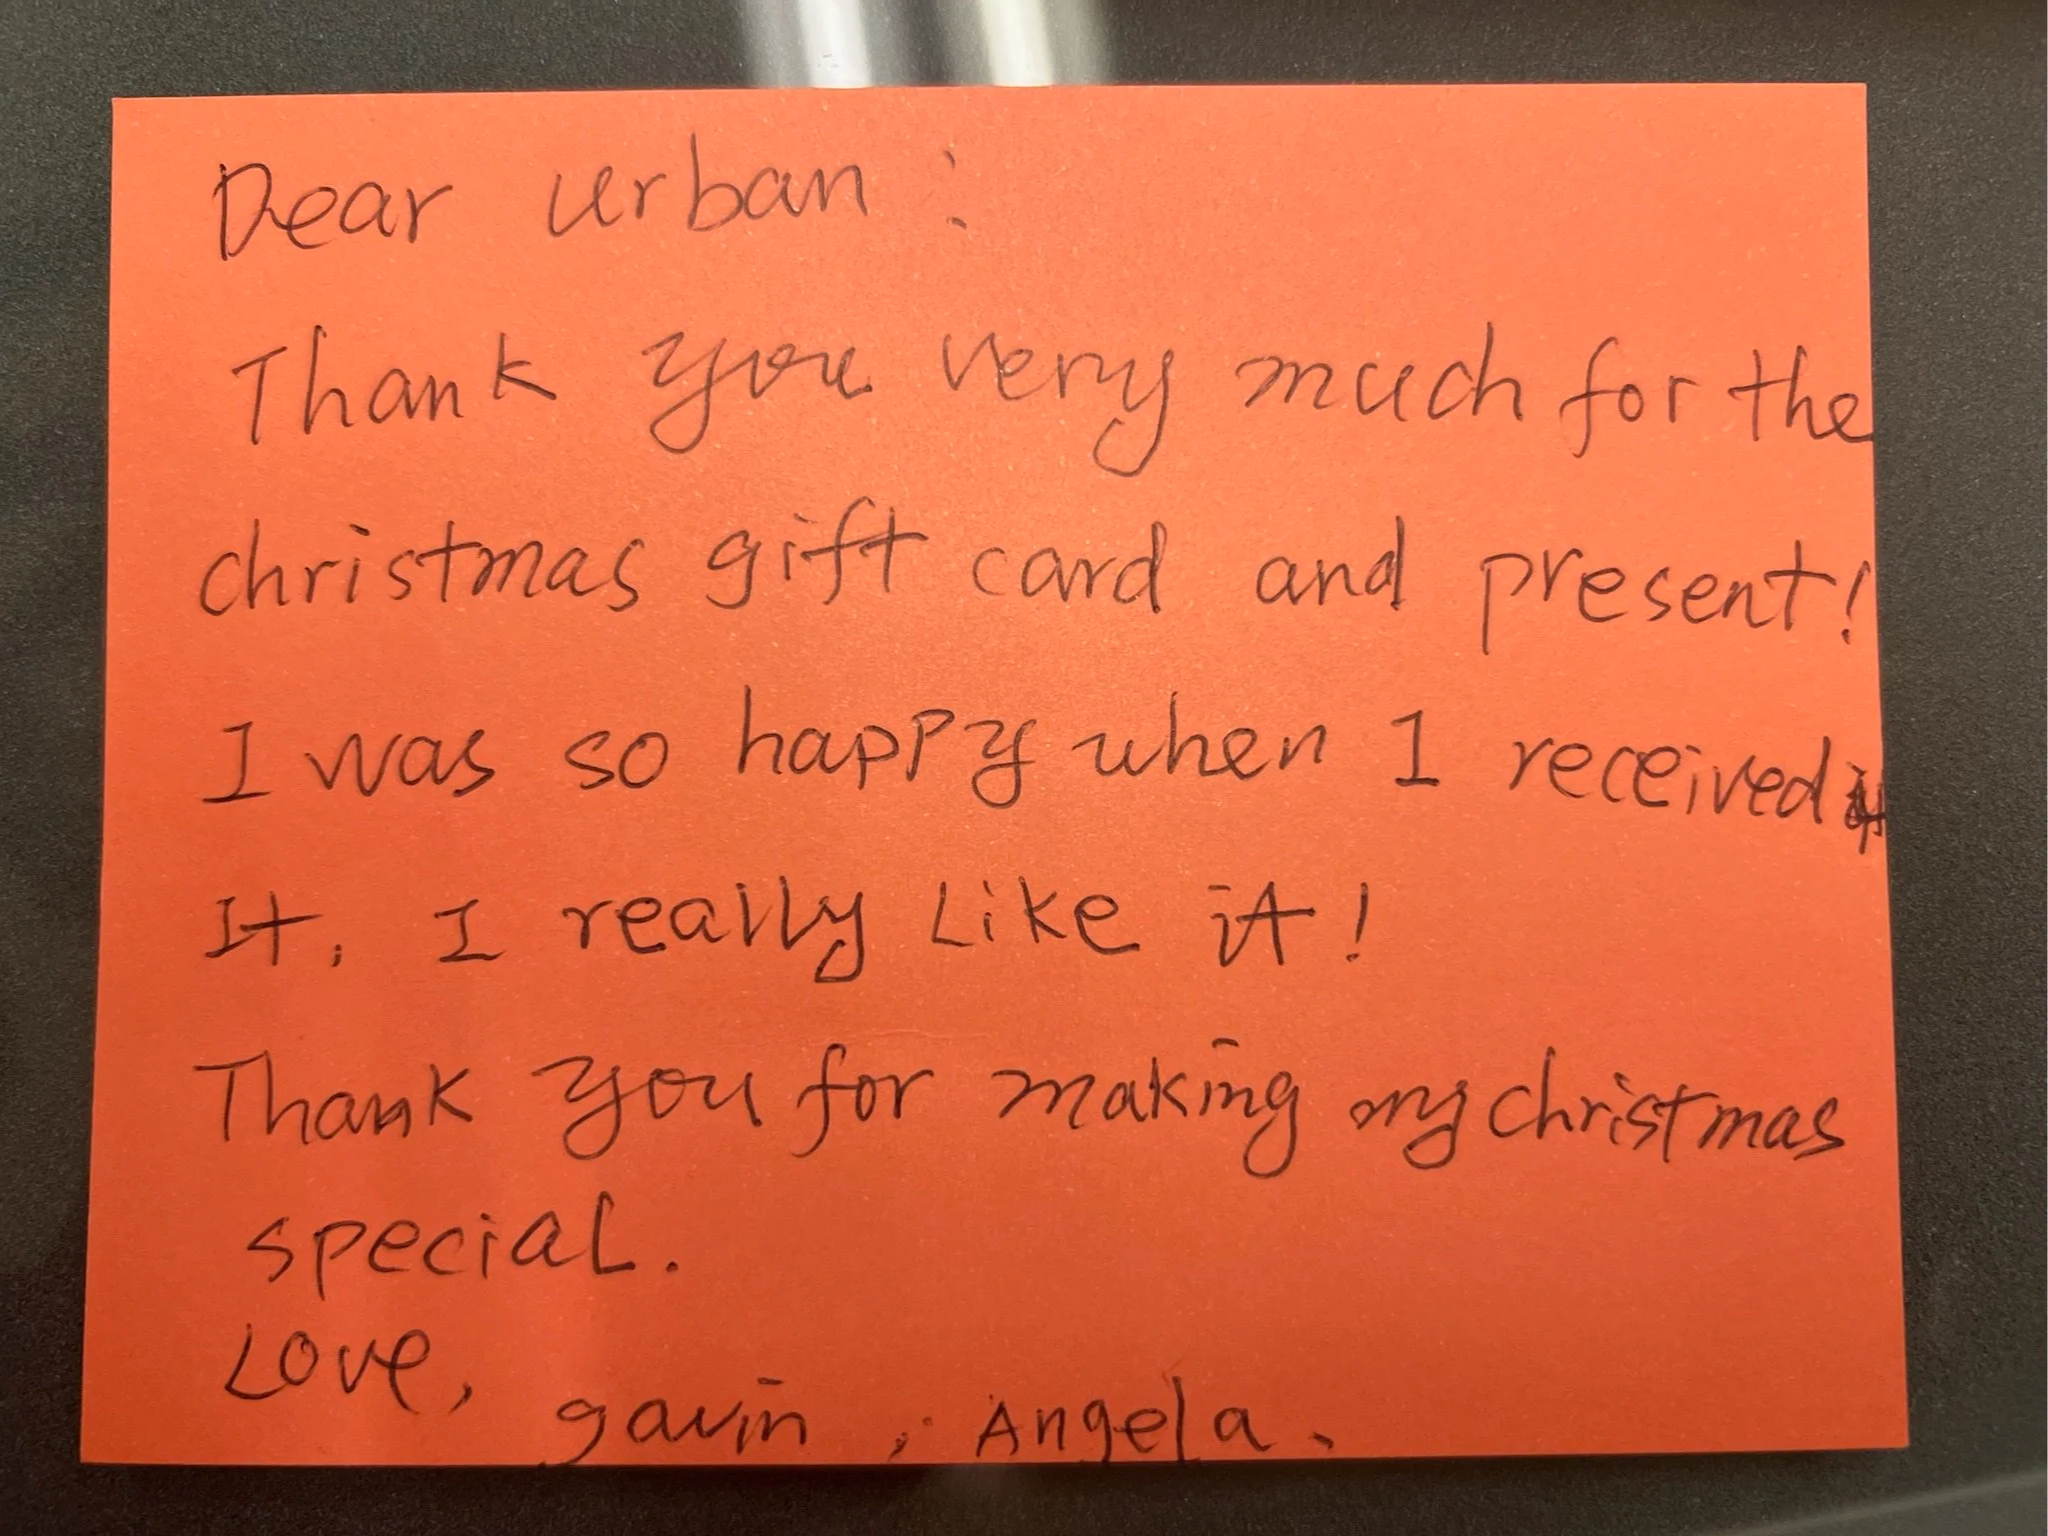 Dear urban :
Thank you very much for the
christmas gift card and present!
I was so happy when I received
It, I really Like it!
Thank you for making my christmas
special.
Love,
gavin, Angela.